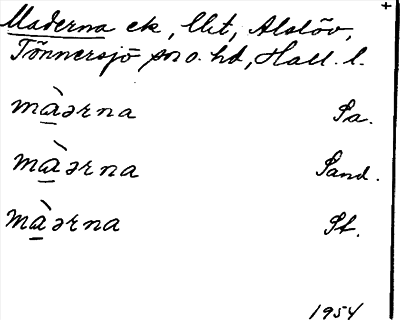 +
Maderna ek, Ulit, Alslöv,
Tönnersjö sn o. hd, Hall. l.
màərna Sa.
màərna Sand.
màərna St.
1954